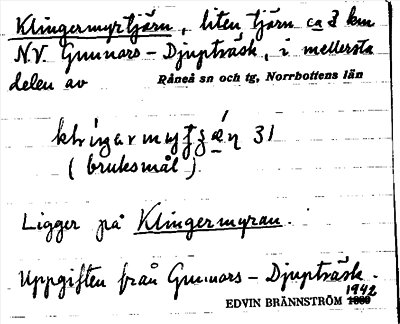 Klingermyrtjärn, liten tjärn ca 2 km
N.V. Gunnars-Djupträsk, i mellersta
delen av Råneå sn och tg, Norrbottens län
31
(bruksmål).
Ligger på Klingermyran.
Uppgiften från Gunnars-Djupträsk.
1942
EDVIN BRÄNNSTRÖM